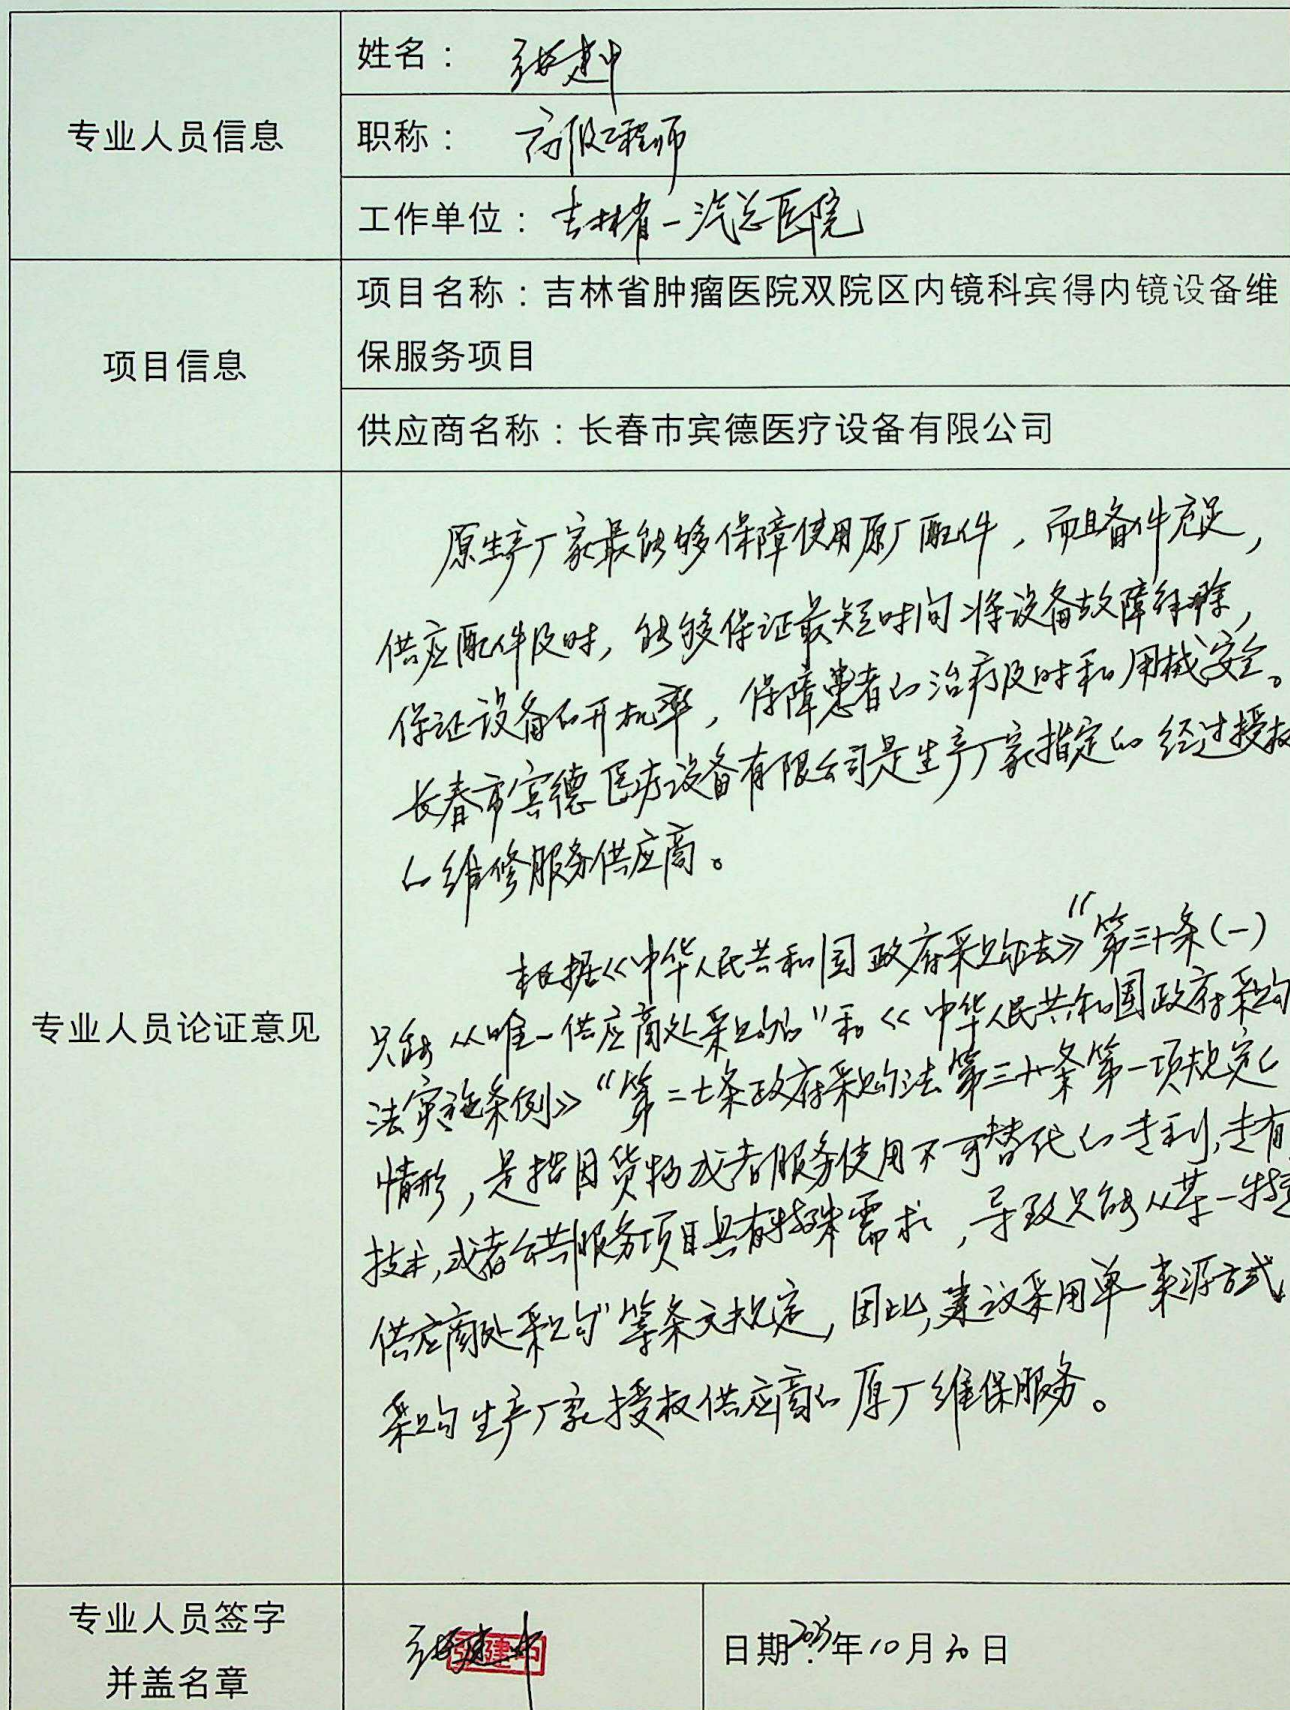 专业人员信息
姓名： 张建中
职称： 高级工程师
工作单位：吉林省一汽总医院
项目信息
项目名称：吉林省肿瘤医院双院区内镜科宾得内镜设备维
保服务项目
供应商名称：长春市宾德医疗设备有限公司
专业人员论证意见
原生产厂家最能够保障使用原厂配件，而且备件充足，
供应配件及时，能够保证最短时间将设备故障排除，
保证设备的开机率，保障患者的治疗及时和用械安全。
长春市宾德医疗设备有限公司是生产厂家指定的经过授权
的维修服务供应商。
根据《中华人民共和国政府采购法》“第三十条(一)
只能从唯一供应商处采购的”和《中华人民共和国政府采购
法实施条例》“第二七条政府采购法第三十一条第一项规定的
情形，是指因货物或者服务使用不可替代的专利,专有
技术,或者公共服务项目具有特殊需求，导致只能从某一特定
供应商处采购”等条文规定，因此,建议采用单一来源方式
采购生产厂家授权供应商的原厂维保服务。
专业人员签字
并盖名章
张建中
张建中
日期 年10月30日